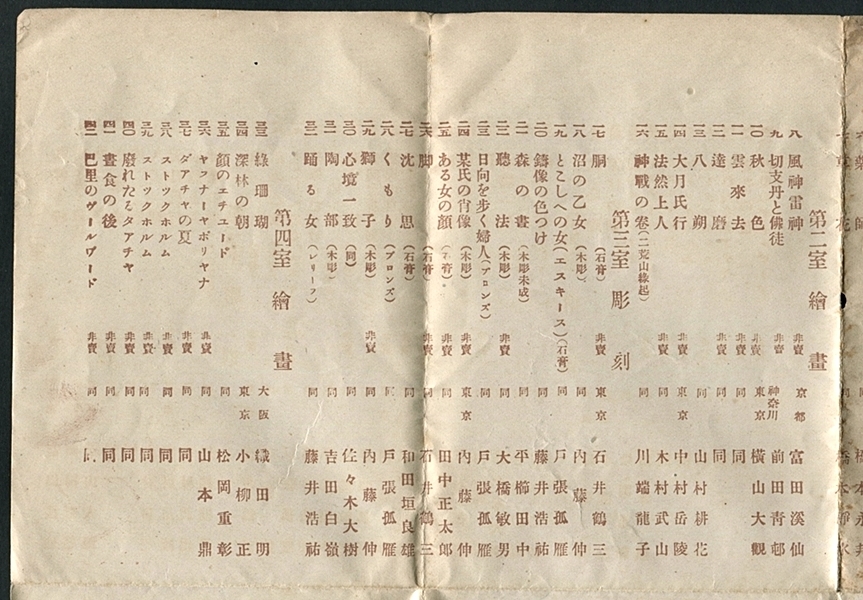 第二室 繪畫
八 風神雷神 非賣 京都 富田溪仙
九 切支丹と佛徒 非賣 神奈川 前田青邨
一〇 秋色 非賣 東京 橫山大觀
一一 雲來去 非賣 同 同
一二 達磨 非賣 同 同
一三 八朔 同 山村耕花
一四 大月氏行 非賣 同 中村岳陵
一五 法然上人 非賣 同 木村武山
一六 神戰の卷(二荒山緣起) 同 川端龍子
第三室 彫刻
一七 胴(石膏) 非賣 東京 石井鶴三
一八 沼の乙女(木彫) 同 內藤伸
一九 とこしへの女(エスキース)(石膏) 同 戶張孤雁
二〇 鑄像の色つけ 同 藤井浩祐
二一 森の晝(木彫未成) 同 平櫛田中
二二 聽法(木彫) 非賣 同 大橋敏男
二三 日向を步く婦人(ブロンズ) 同 戶張孤雁
二四 某氏の肖像(木彫) 非賣 東京 內藤伸
二五 ある女の顏(石膏) 非賣 同 田中正太郎
二六 脚(石膏) 非賣 同 石井鶴三
二七 沈思(石膏) 同 和田垣良雄
二八 くもり(ブロンズ) 同 戶張孤雁
二九 獅子(木彫) 非賣 同 內藤伸
三〇 心境一致(同) 同 佐々木大樹
三一 陶部(木彫) 同 吉田白嶺
三二 踊る女(レリーフ) 同 藤井浩祐
第四室 繪畫
三三 綠珊瑚 大阪 織田明
三四 深林の朝 東京 小柳正
三五 顏のエチユード 同 松岡重彰
三六 ヤスナーヤポリヤナ 非賣 同 山本鼎
三七 ダアチヤの夏 非賣 同 同
三八 ストツクホルム 非賣 同 同
三九 ストツクホルム 非賣 同 同
四〇 廢れたるダアチヤ 非賣 同 同
四一 晝食の後 非賣 同 同
四二 巴里のブールヴード 非賣 同 同